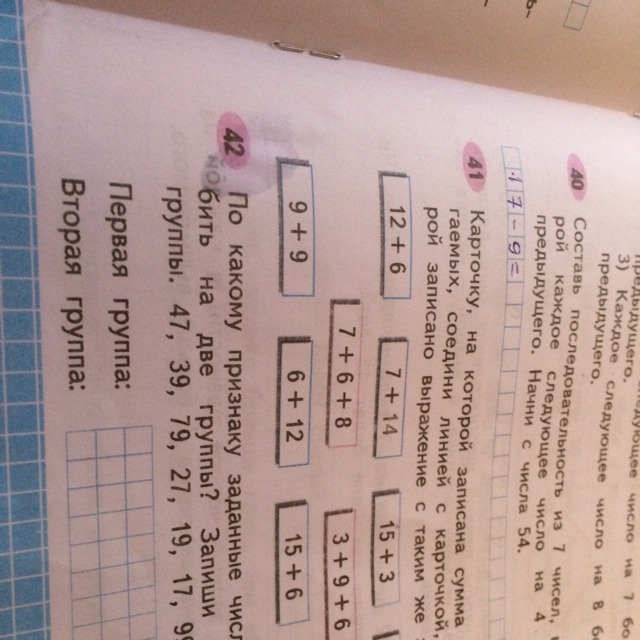 3) Каждое следующее число на 8
предыдущего.
40 Составь последовательность из 7 чисел,
рой каждое следующее число на 4
предыдущего. Начни с числа 54.
17-9=
41 Карточку, на которой записана сумма
гаемых, соедини линией с карточкой,
рой записано выражение с таким же
12 + 6 7 + 14 15 + 3
7 + 6 + 8 3 + 9 + 6
9 + 9 6 + 12 15 + 6
42 По какому признаку заданные числ
бить на две группы? Запиши
группы. 47, 39, 79, 27, 19, 17, 9
Первая группа:
Вторая группа: